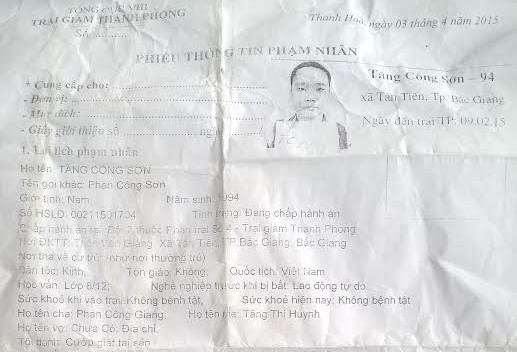 TỔNG CỤC VIII
TRẠI GIAM THANH PHONG
Số ...........
Thanh Hoá, ngày 03 tháng 4 năm 2015
PHIẾU THÔNG TIN PHẠM NHÂN
* Cung cấp cho: ...........
- Đơn vị: ...........
- Mục đích: ...........
- Giấy giới thiệu số ........... ngày
Tăng Công Sơn – 94
xã Tân Tiến, Tp. Bắc Giang
Ngày đến trại TP: 09.02.15
1. Lai lịch phạm nhân
Họ tên: TĂNG CÔNG SƠN
Tên gọi khác: Phan Công Sơn
Giới tính: Nam, Năm sinh: 1994
Số HSLĐ: Tình trạng: Đang chấp hành án
Chấp hành án tại: Đội 7 thuộc Phân trại Số 4 - Trại giam Thanh Phong
Nơi ĐKTT: Thôn Giang Xã Tân Tiến, TP Bắc Giang, Bắc Giang
Nơi tha về cư trú: (như nơi thường trú)
Dân tộc: Kinh, Tôn giáo: Không, Quốc tịch: Việt Nam
Học vấn: Lớp 6/12; Nghề nghiệp trước khi bị bắt: Lao động tự do
Sức khoẻ khi vào trại: Không bệnh tật, Sức khoẻ hiện nay: Không bệnh tật
Họ tên cha: Phan Công Giang, Họ tên mẹ: Tăng Thị Huynh
Họ tên vợ: Chưa Có, Địa chỉ:
Tội danh: Cướp giật tài sản